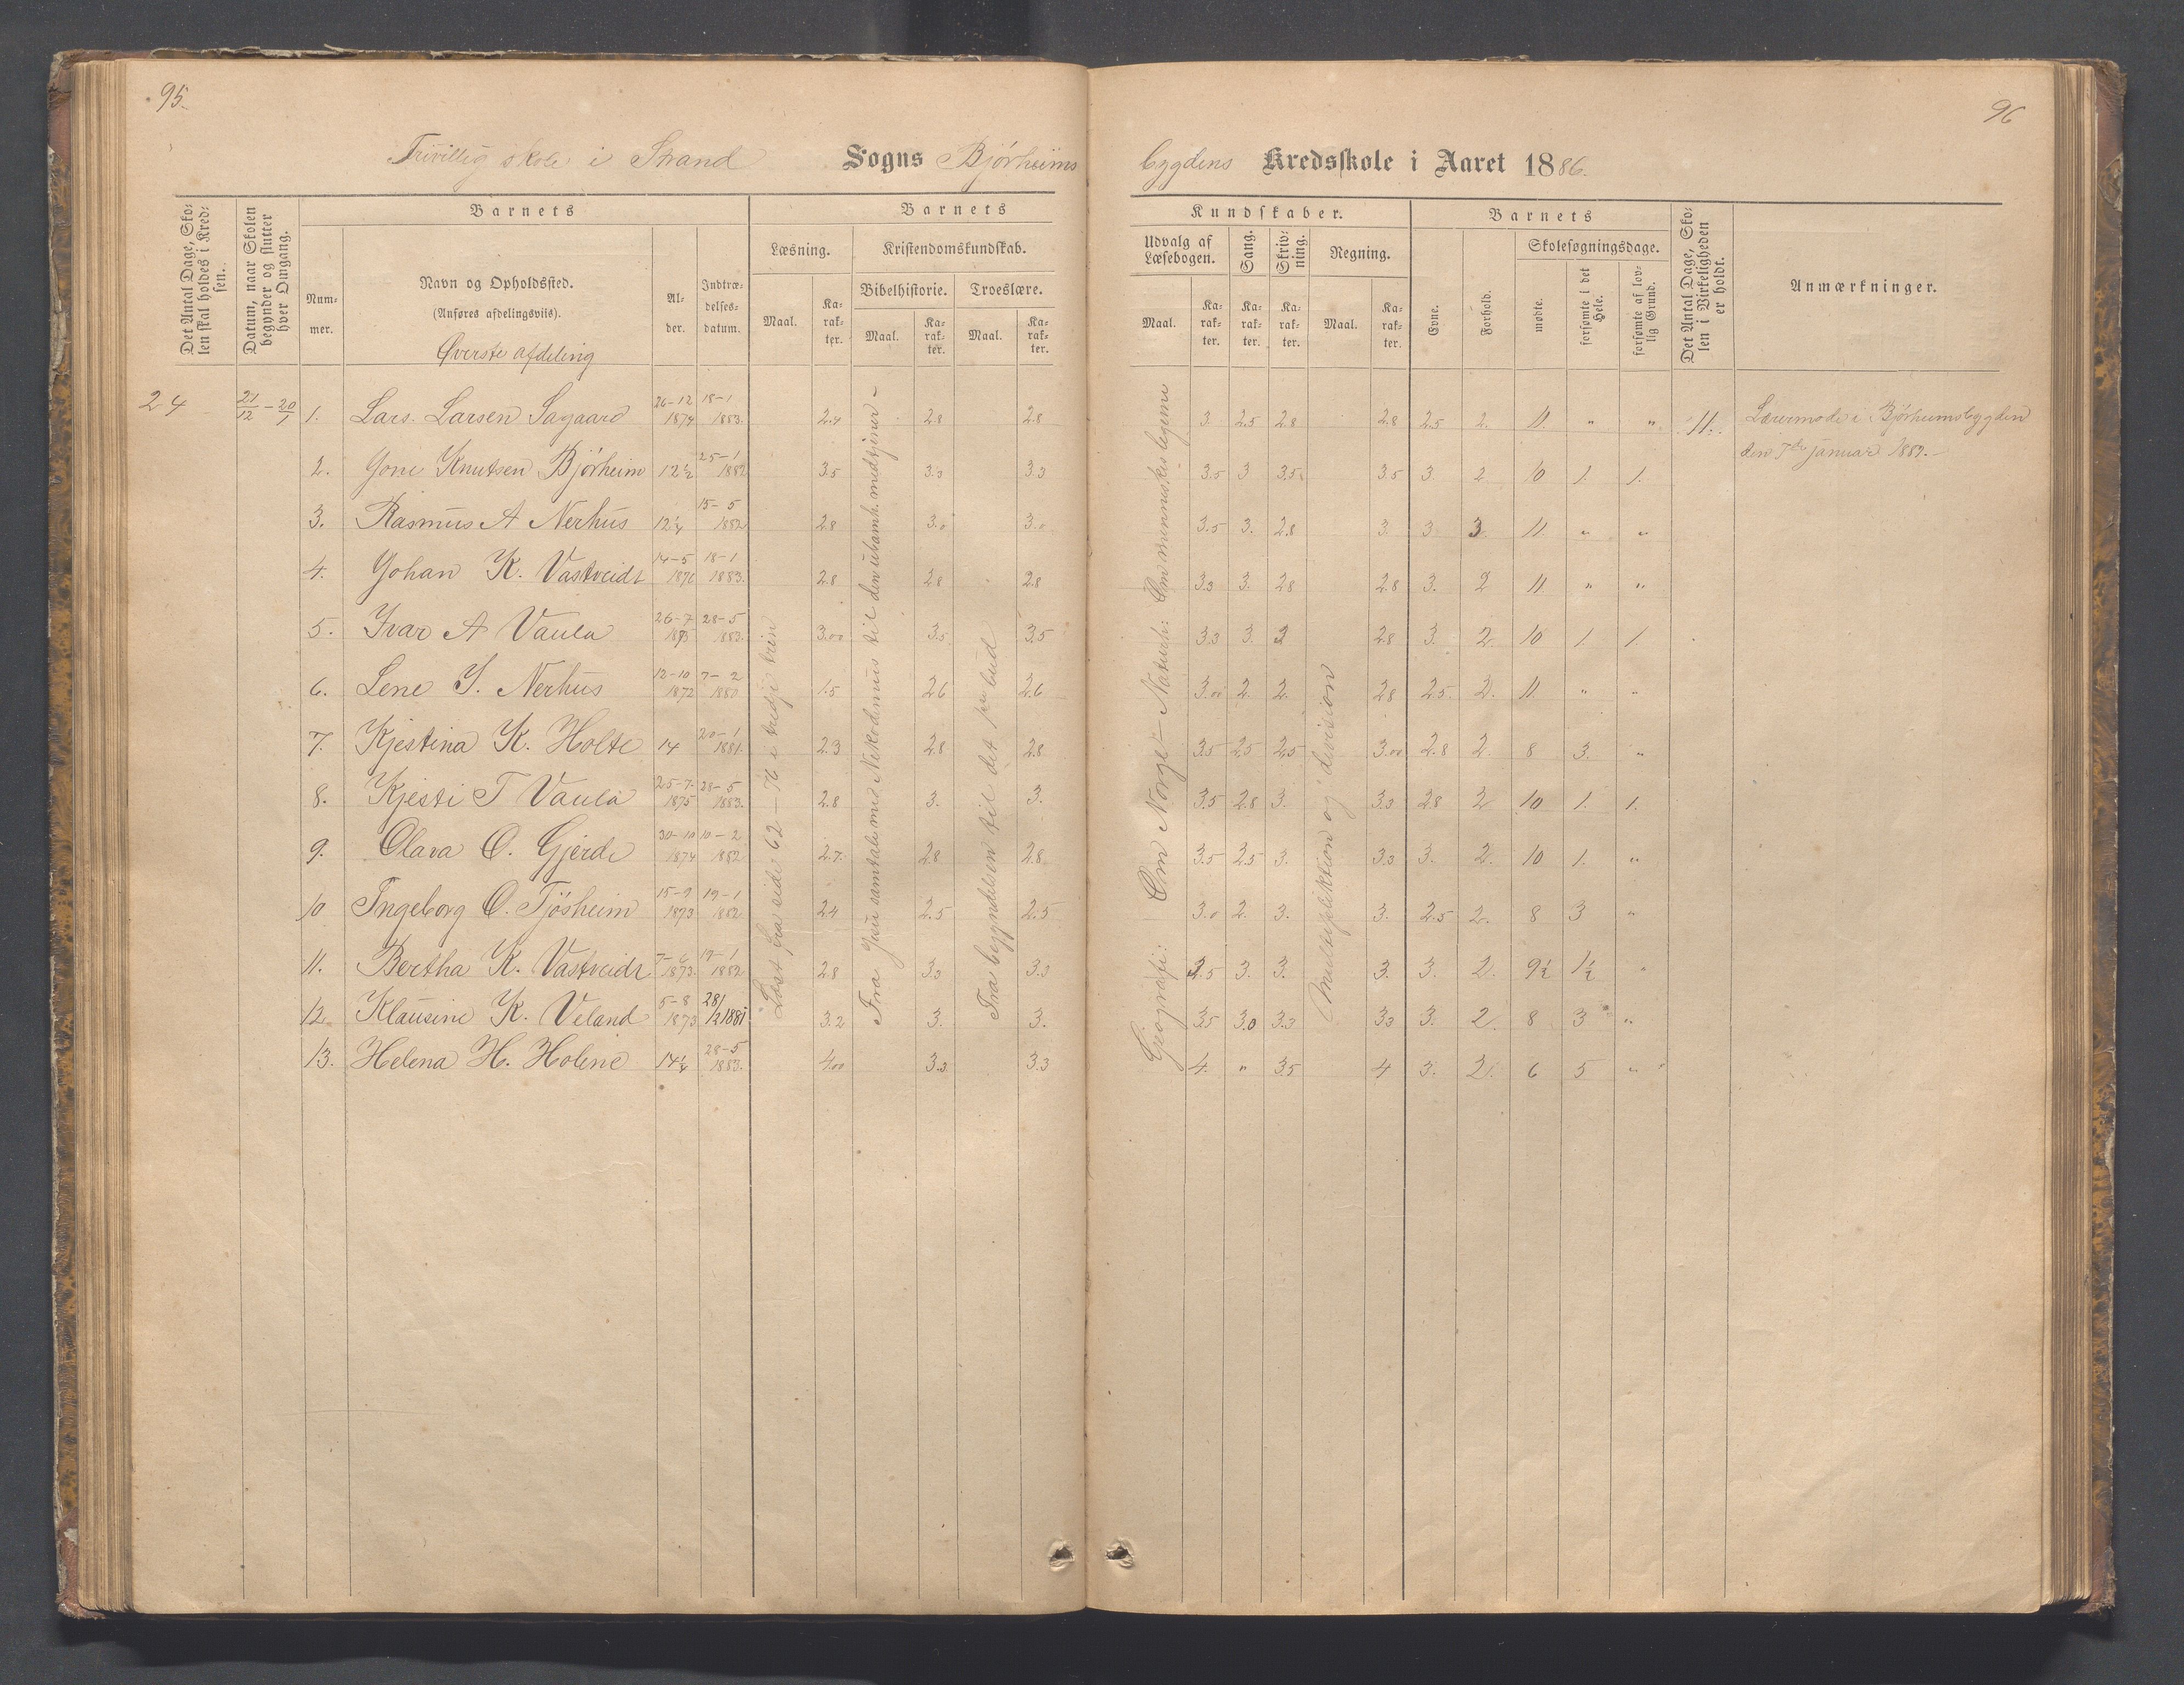 95.
96
Frivillig skole i Strand Sogns Bjørheims
bygdens Kredsskole i Aaret 1886.
Det Antal Dage, Skolen skal holdes i Kredsen.
Datum, naar Skolen begynder og slutter hver Omgang.
Barnets
Nummer.
Navn og Opholdssted.
(Anføres afdelingsvis).
Øverste afdeling
Alder.
Indtrædelsesdatum.
Barnets
Læsning.
Maal.
Karakter.
Kristendomskundskab.
Bibelhistorie.
Maal.
Karakter.
Troeslære.
Maal.
Karakter.
Kundskaber.
Udvalg af Læsebogen.
Maal.
Karakter.
Sang.
Karakter.
Skrivning.
Karakter.
Regning.
Maal.
Karakter.
Barnets
Evne.
Forhold.
Skolesøgningsdage.
mødte.
forsømte i det Hele.
forsømte af lovlig Grund.
Det Antal Dage, Skolen i Virkeligheden er holdt.
Anmærkninger.
24 21/12 – 20/1 1. Lars. Larsen Sagaard 26-12 1874 18-1 1883. 2.4 2.8 2.8 3. 2.5 2.8 2.8 2.5 2. 11. " " 11.
2. Gone Knutsen Bjørheim 12½ 25-1 1882 3.5 3.3 3.3 3.5 3 3.5 3.5 3. 2 10 1. 1.
3. Rasmus A Nerhus 12¼ 15-5 1882 2.8 3.0 3.0 3.5 3. 2.8 3. 3. 3. 11. " "
4. Johan K. Vastveidt 14-5 18-1 1883. 2.8 2.8 2.8 3.3 3. 2.8 2.8 3. 2 11. " "
5. Ivar A Vaula 26-7 28-5 1883. 3.00 3.5 3.5 3.3 3. 3 2.8 3. 2. 10 1. 1.
6. Lene J. Nerhus 12-10 1872 7-2 1880 1.5 2.6 2.6 3.00 2. 2. 2.8 2.5 2. 11. " "
7. Kjestina K. Holte 14 20-1 1881. 2.3 2.8 2.8 3.5 2.5 2.5 3.00 2.8 2 8 3. "
8. Kjesti T Vaula 25-7 1875 28-5 1883. 2.8 3. 3. 3.5 2.8 3. 3.3 2.8 2 10 1. 1.
9. Olava O. Gjerde 30-10 1874 10-2 1882 2.7. 2.8 2.8 3.5 2.5 3. 3.3 3. 2. 10 1. "
10 Ingeborg O. Tjøsheim 15-9 1873 19-1 1882 2.4 2.5 2.5 3.0 2. 3. 3. 2.5 2. 8 3 "
11. Bertha K. Vastveidt 7-6 1873. 19-1 1882 2.8 3.3 3.3 3.5 3. 3. 3. 3. 2. 9½ 1½ "
12. Klausine K. Veland 5-8 1873 28/1 1881 3.2 3. 3. 3.5 3.0 3.3 3.3 3. 2. 8 3 "
13. Helena H. Holene 14¼ 28-5 1883. 4.00 3.3 3.3 4. " 3.5 4 3. 2. 6 5 "
Læst fra side 62 – 76 i tredje trin
Fra Jesu samtale med Nikodemus til den ubarmh. medtjener –
Fra begyndelsen til det bud
Geografi: Om Norge – Naturh: Om menneskelegeme
Multiplikktion og division
Lærermøde i Bjørheimsbygden
den 7de januar